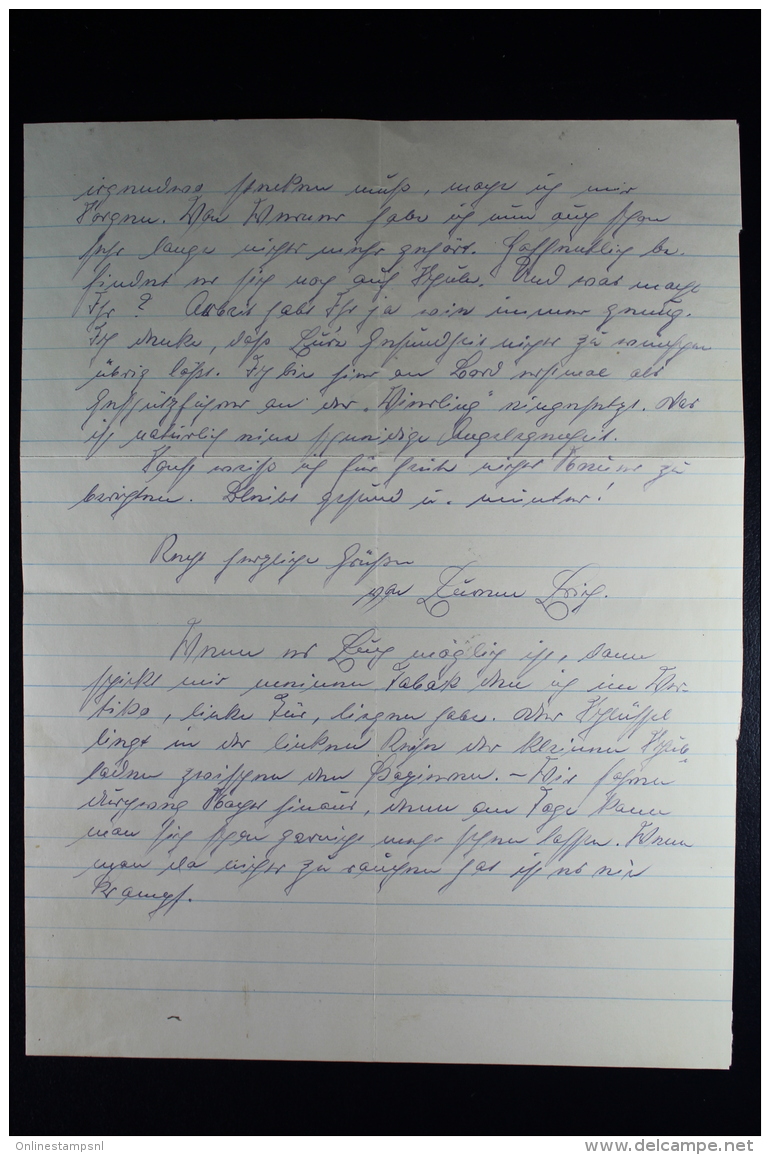 irgendwo stecken muß, mache ich mir
Sorgen. Von Werner habe ich nun auch schon
sehr lange nichts mehr gehört. Hoffentlich be-
findet er sich noch auf Schule. Und was macht
Ihr? Arbeit habt Ihr ja wie immer genug.
Ich denke, daß Eure Gesundheit nichts zu wünschen
übrig läßt. Ich bin hier an Bord erstmal als
Geschützführer an der „Vierling“ eingesetzt. Das
ist natürlich eine schneidige Angelegenheit.
Sonst weiß ich für heute nichts Neues zu
berichten. Bleibt gesund u. munter!
Recht herzliche Grüße
von Eurem Erich.
Wenn es Euch möglich ist, dann
schickt mir meinen Tabak den ich im Ver-
tiko, linke Tür, liegen habe. Der Schlüssel
liegt in der linken Reihe der kleinen Schub-
laden zwischen den Papieren. – Wir fahren
durchweg Nachts hinaus, denn am Tage kann
man sich schon garnicht mehr sehen lassen. Wenn
man da nichts zu rauchen hat ist es ein
Krampf.
Onlinestampsnl
www.delcampe.net